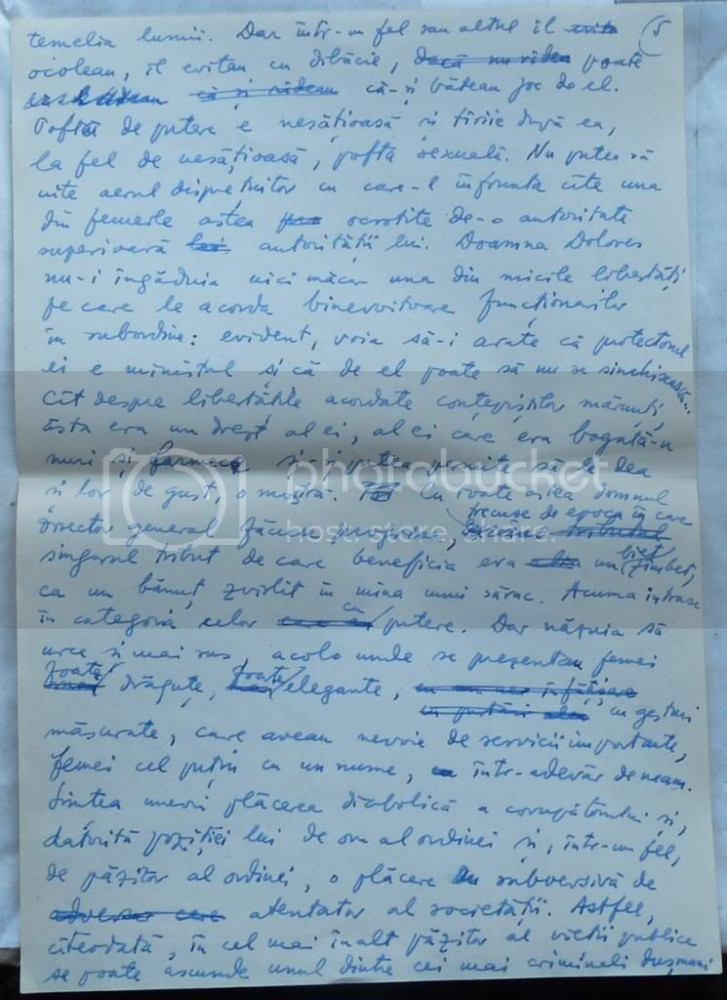 5
temelia lumii. Dar într-un fel sau altul îl evita
ocoleau, îl evitau cu dibăcie, dacă nu rîdeau poate
că și rîdeau că-și băteau joc de el.
Pofta de putere e nesățioasă și tîrîie după ea,
la fel de nesățioasă, pofta sexuală. Nu putea să
uite aerul disprețuitor cu care-l înfrunta cîte una
din femeile astea ocrotite de-o autoritate
superioară lui autorității lui. Doamna Dolores
nu-i îngăduia nici măcar una din micile libertăți
pe care le acorda binevoitoare funcționarilor
în subordine: evident, voia să-i arate că protectorul
ei e ministrul și că de el poate să nu se sinchisească...
Cît despre libertățile acordate conțopiștilor mărunți,
ăsta era un drept al ei, al ei care era bogată-n
nuri și farmece și-și putea permite să le dea
și lor, de gust, o mostră. Cu toate astea domnul
director general făcuse progrese, trecuse de epoca în care
singurul tribut de care beneficia era un biet zîmbet,
ca un bănuț zvîrlit în mîna unui sărac. Acuma intrase
în categoria celor cu putere. Dar năzuia să
urce și mai sus acolo unde se prezentau femei
foarte drăguțe, foarte elegante, cu gesturi
măsurate, care aveau nevoie de servicii importante,
femei cel puțin cu un nume, într-adevăr de neam.
Simțea uneori plăcerea diabolică a corupătorului și,
datorită poziției lui de om al ordinei și, într-un fel,
de păzitor al ordinei, o plăcere subversivă de
atentator al societății. Astfel,
cîteodată, în cel mai înalt păzitor al vieții publice
se poate ascunde unul dintre cei mai criminali dușmani
photobucket
host. store. share.